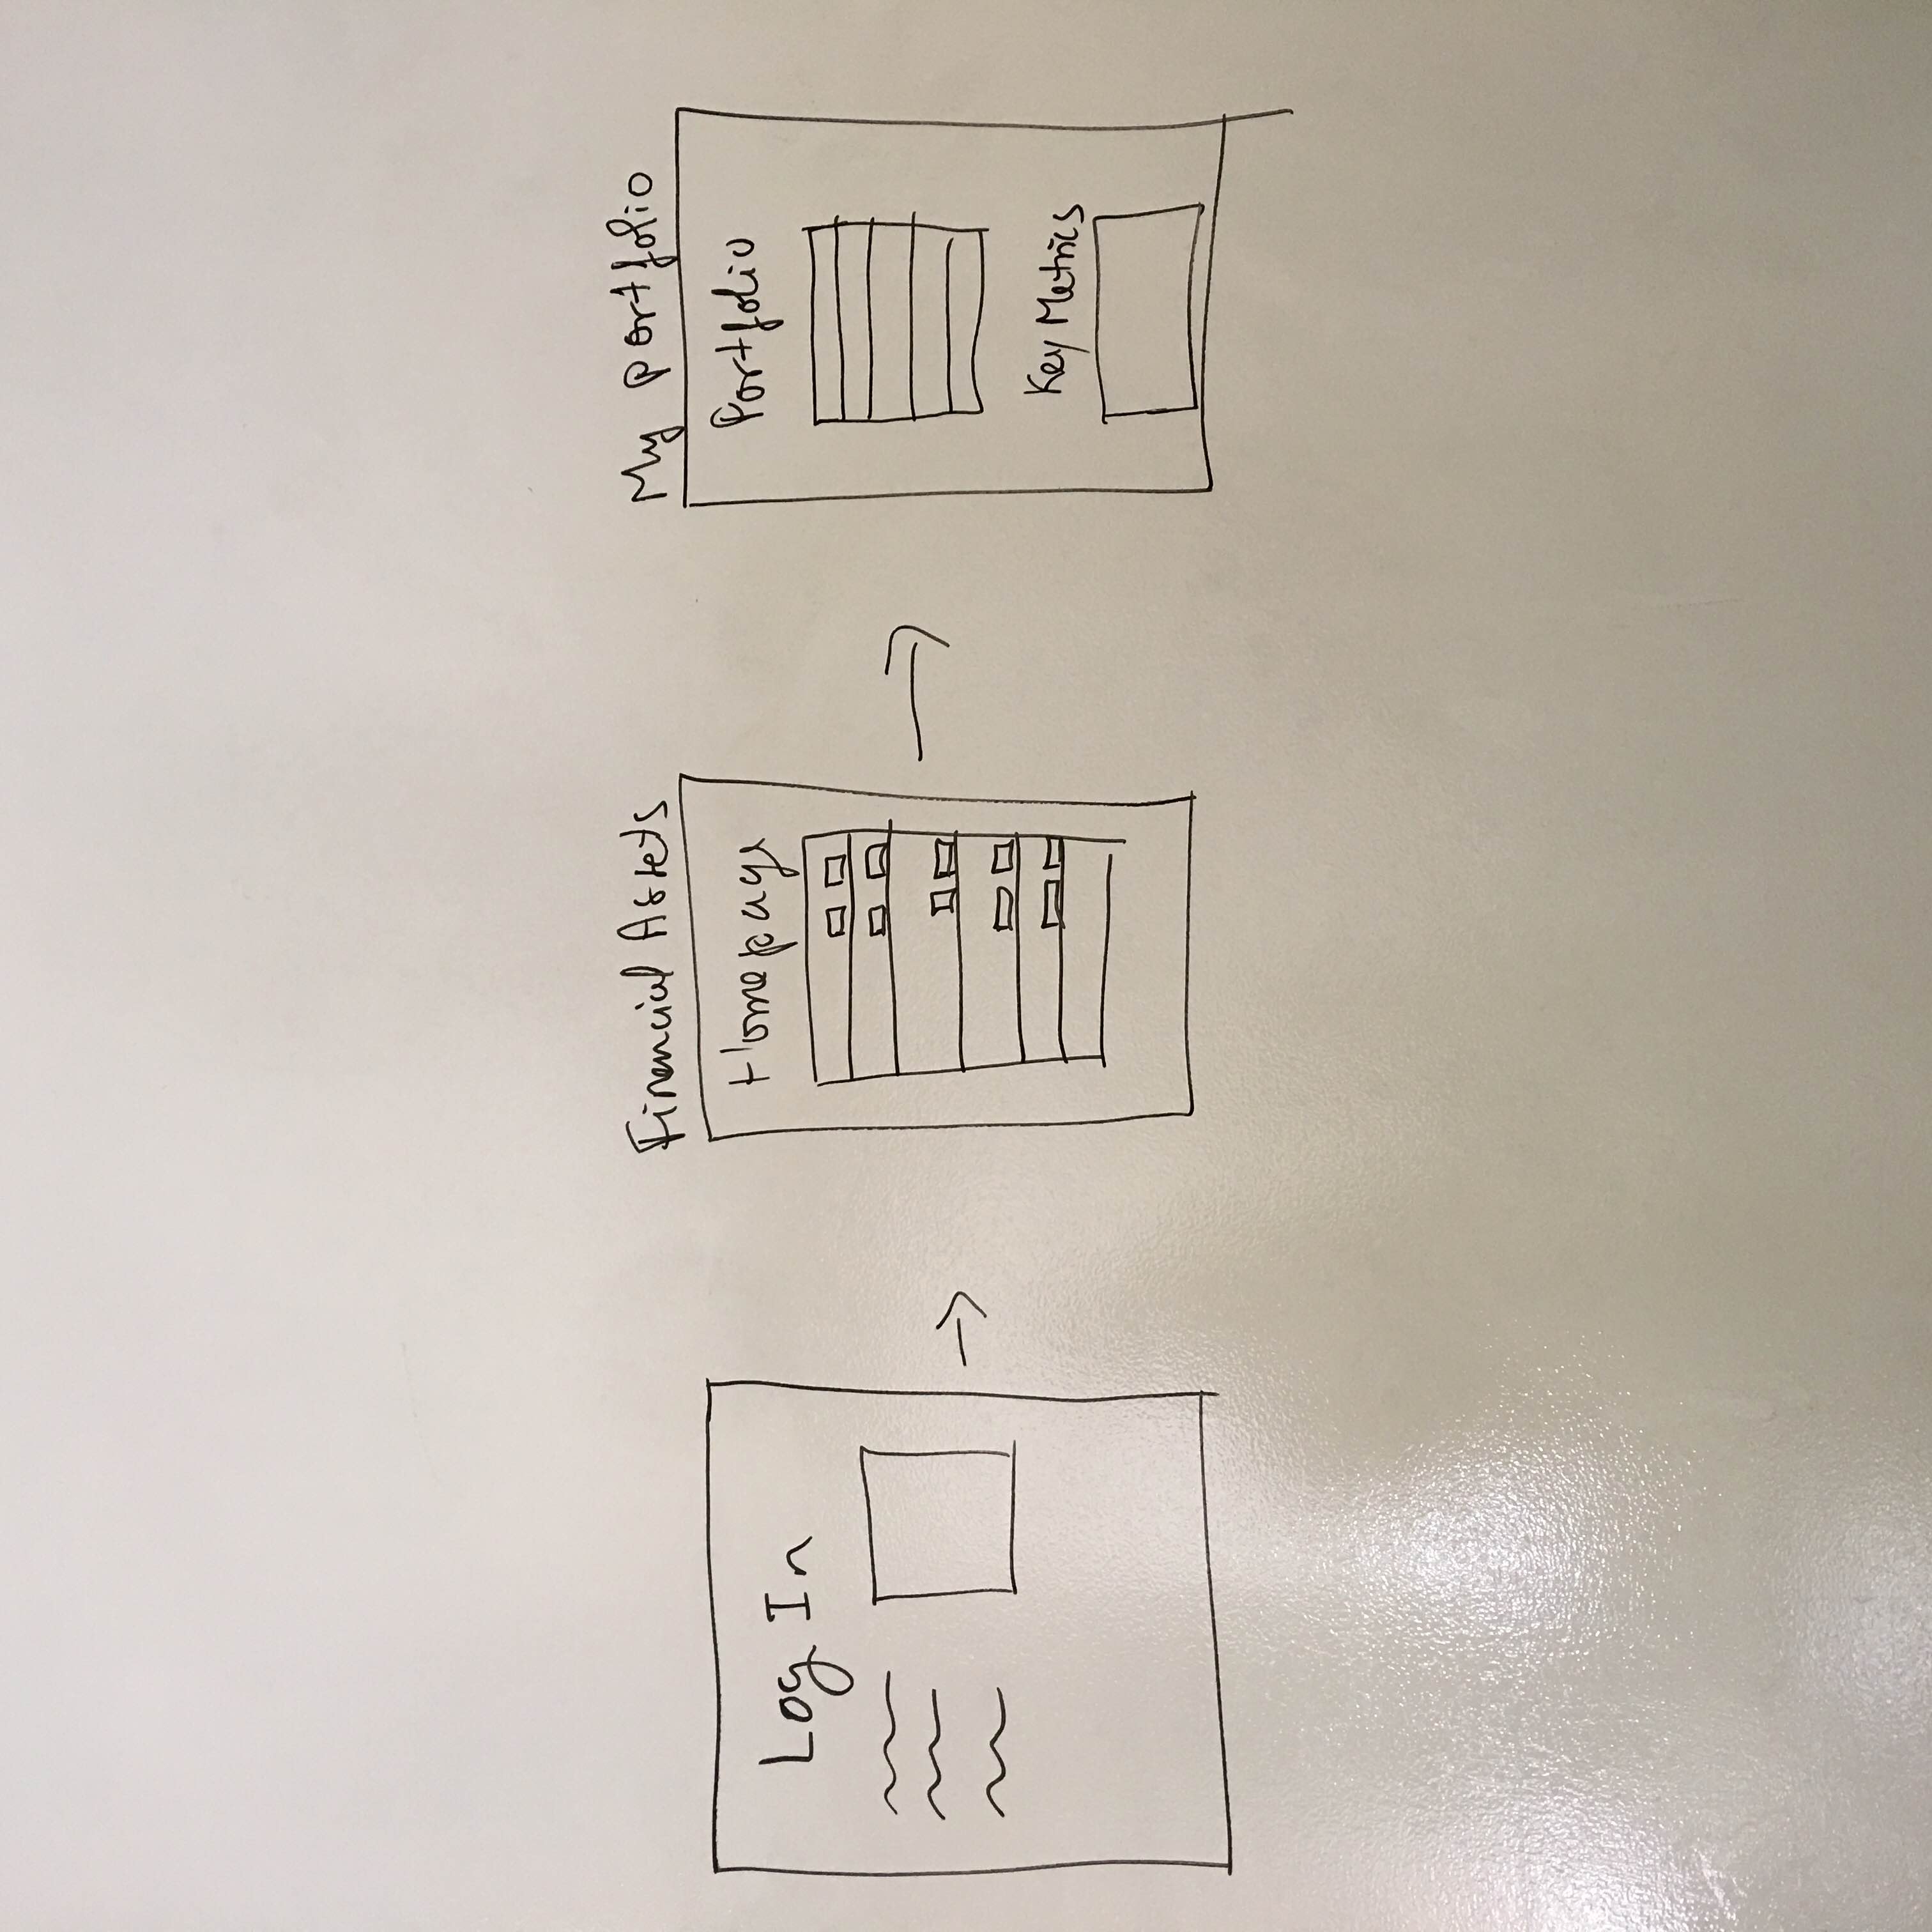 Log In
Financial Assets
Homepage
My Portfolio
Portfolio
Key Metrics